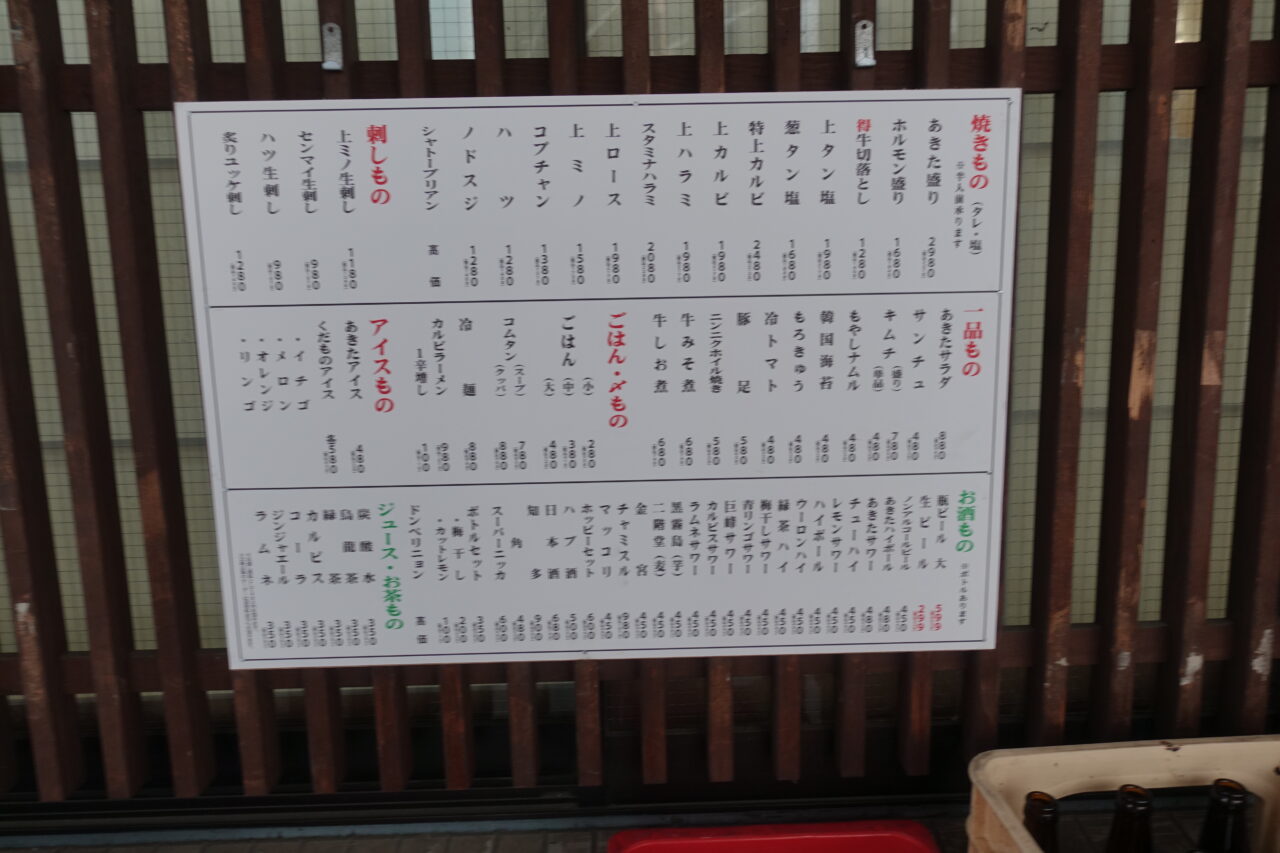 焼きもの（タレ・塩）
※半人前承ります
あきた盛り 2980
ホルモン盛り 1680
得牛切落とし 1280
上タン塩 1980
葱タン塩 1680
特上カルビ 2480
上カルビ 1980
上ハラミ 1980
スタミナハラミ 2080
上ロース 1980
上ミノ 1580
コプチャン 1380
ハツ 1280
ノドスジ 1280
シャトーブリアン 高価
刺しもの
上ミノ生刺し 1180
センマイ生刺し 980
ハツ生刺し 980
炙りユッケ刺し 1280
一品もの
あきたサラダ 880
サンチュ 480
キムチ（盛り） 780
（単品） 480
もやしナムル 480
韓国海苔 480
もろきゅう 480
冷トマト 480
豚足 580
ニンニクホイル焼き 580
牛みそ煮 680
牛しお煮 680
ごはん・〆もの
ごはん（小） 280
（中） 380
（大） 480
コムタン（スープ） 780
（クッパ） 880
冷麺 880
カルビラーメン 980
1辛増し 100
アイスもの
あきたアイス 480
くだものアイス 各580
・イチゴ
・メロン
・オレンジ
・リンゴ
お酒もの ※ボトルあります
瓶ビール大 599
生ビール 299
ノンアルコールビール 450
あきたハイボール 480
あきたサワー 480
チューハイ 450
レモンサワー 450
ハイボール 450
ウーロンハイ 450
緑茶ハイ 450
梅干しサワー 450
青リンゴサワー 450
巨峰サワー 450
カルピスサワー 450
ラムネサワー 450
黒霧島（芋） 450
二階堂（麦） 450
金宮 450
チャミスル 980
マッコリ 450
ホッピーセット 600
ハブ酒 500
日本酒 680
知多 900
角 480
スーパーニッカ 600
ボトルセット 350
・梅干し 200
・カットレモン 100
ドンペリニョン 高価
ジュース・お茶もの
炭酸水 350
烏龍茶 350
緑茶 350
カルピス 350
コーラ 350
ジンジャエール 350
ラムネ 350